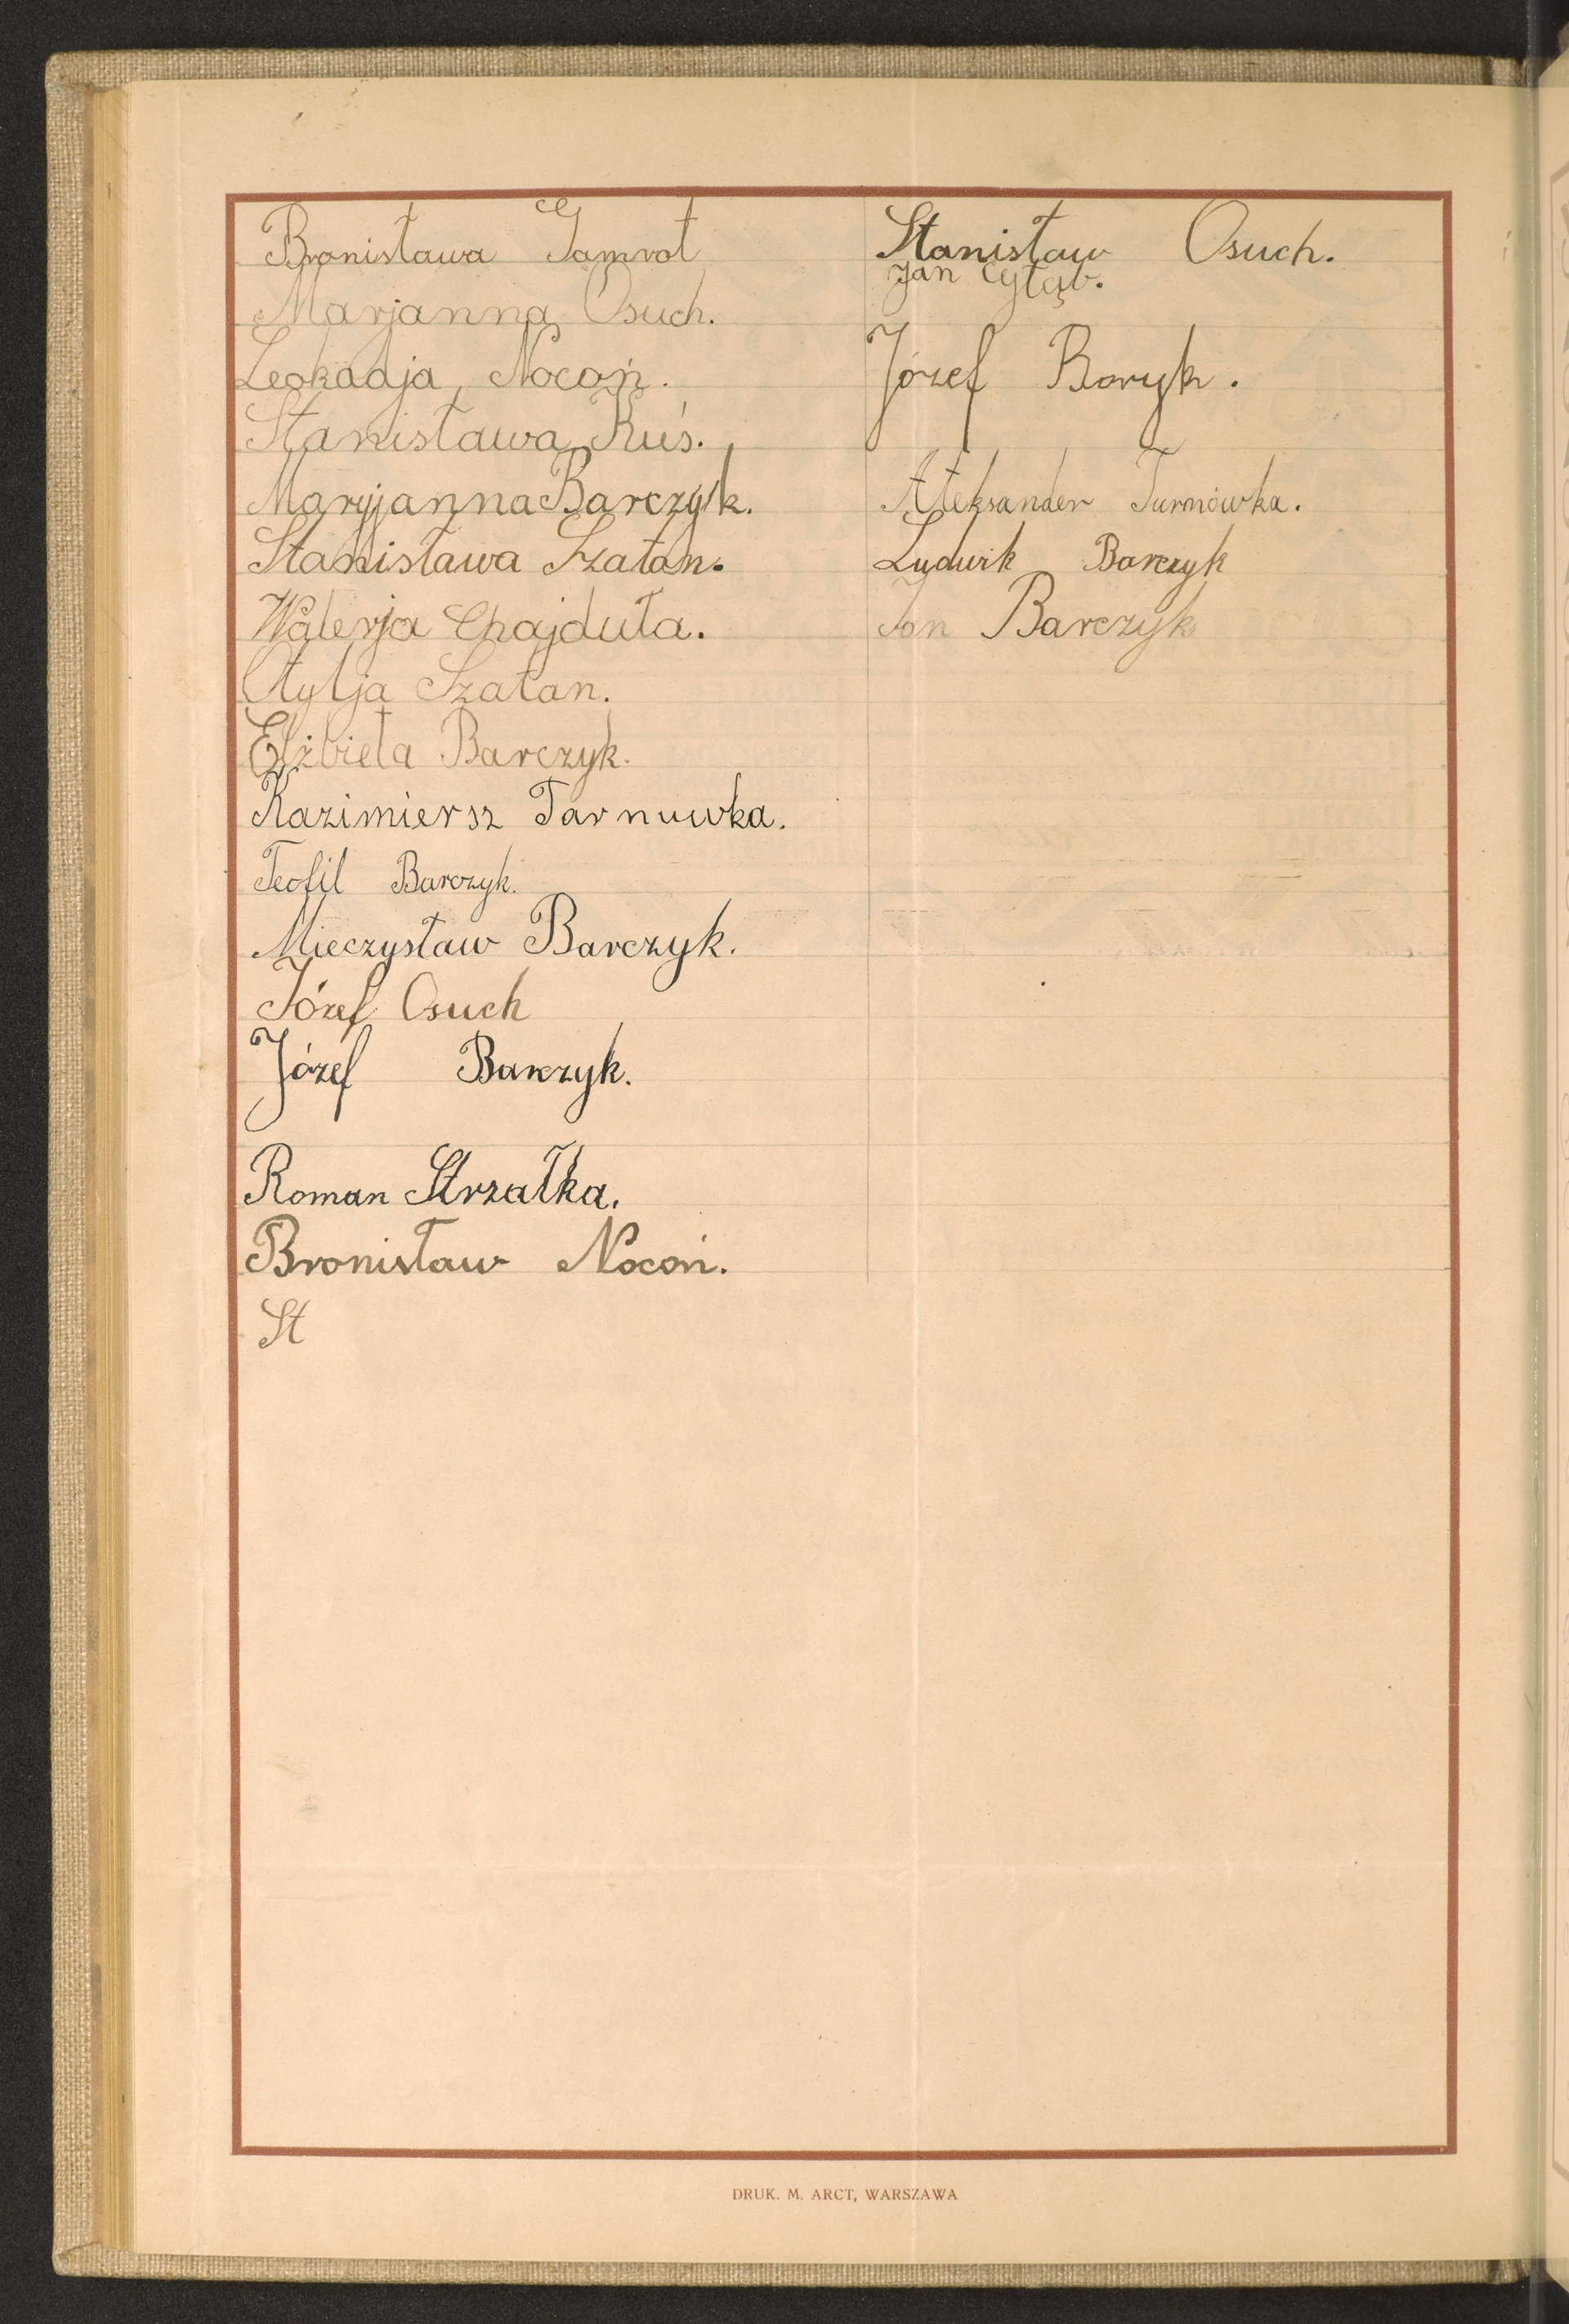 Bronisława Gamrot
Marjanna Osuch.
Leokadja Nocoń.
Stanisława Kuś.
Maryjanna Barczyk.
Stanisława Szatan.
Walerja Chajduła.
Otylja Szatan.
Elżbieta Barczyk.
Kazimiersz Tarnuwka.
Teofil Barczyk.
Mieczysław Barczyk.
Józef Osuch
Józef Barczyk.
Roman Strzałka.
Bronisław Nocoń.
St
Stanisław Osuch.
Jan Cgłąb.
Józef Boryk.
Aleksander Turnówka.
Ludwik Barczyk
Jan Barczyk
DRUK. M. ARCT, WARSZAWA